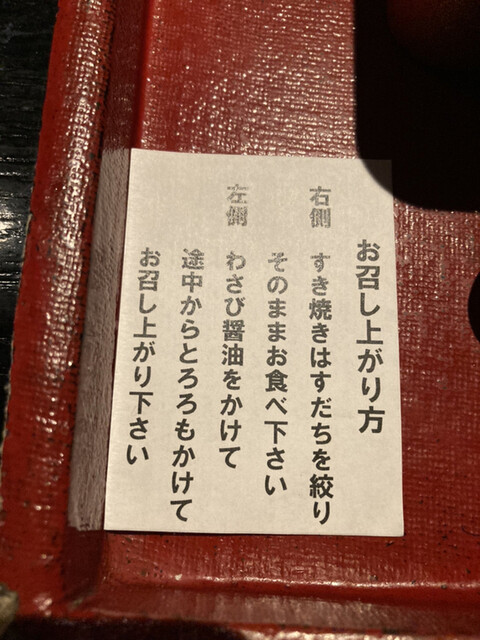 お召し上がり方
右側 すき焼きはすだちを絞り
そのままお食べ下さい
左側 わさび醤油をかけて
途中からとろろもかけて
お召し上がり下さい